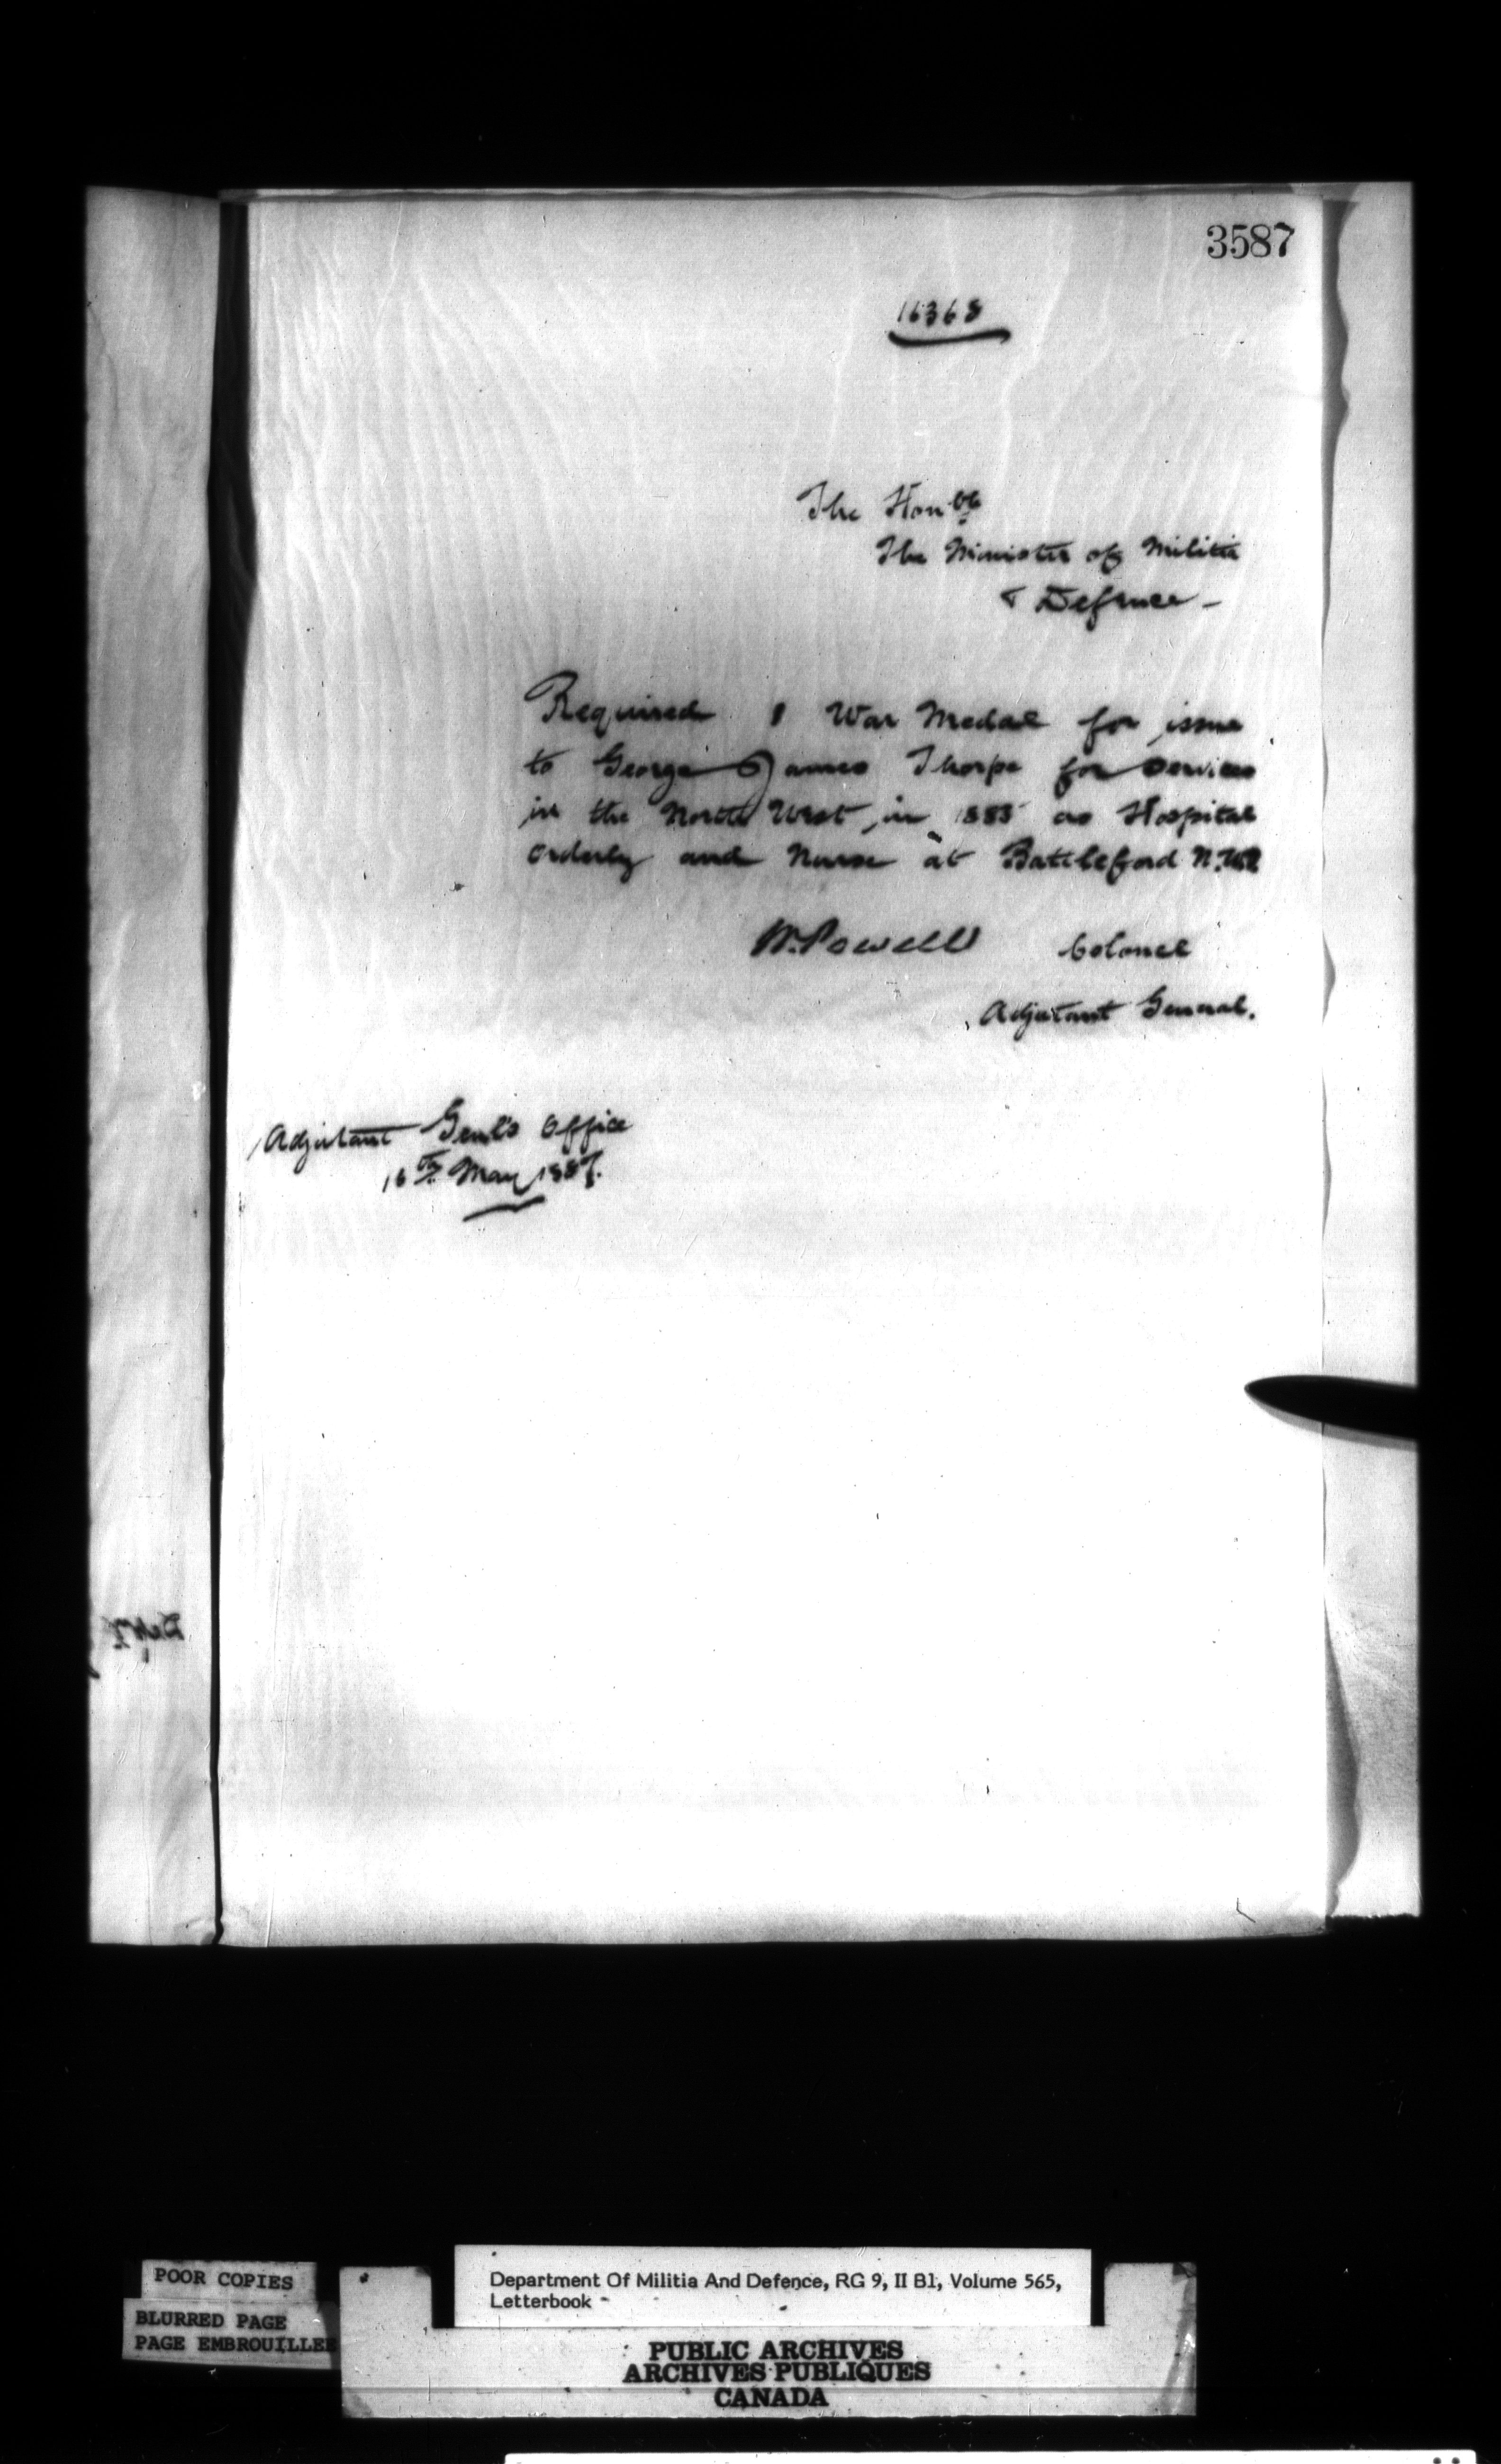 3587
16368
The Honble
The Minister of Militia
& Defence -
Required 1 War Medal for issue
to George James Thorpe for services
in the North West in 1885 as Hospital
Orderly and Nurse at Battleford N.W.T
W. Powell Colonel
Adjutant General.
Adjutant Genl's Office
16th May 1887.
Dept
POOR COPIES
BLURRED PAGE
PAGE EMBROUILLEE
Department Of Militia And Defence, RG 9, II B1, Volume 565,
Letterbook -
PUBLIC ARCHIVES
ARCHIVES PUBLIQUES
CANADA